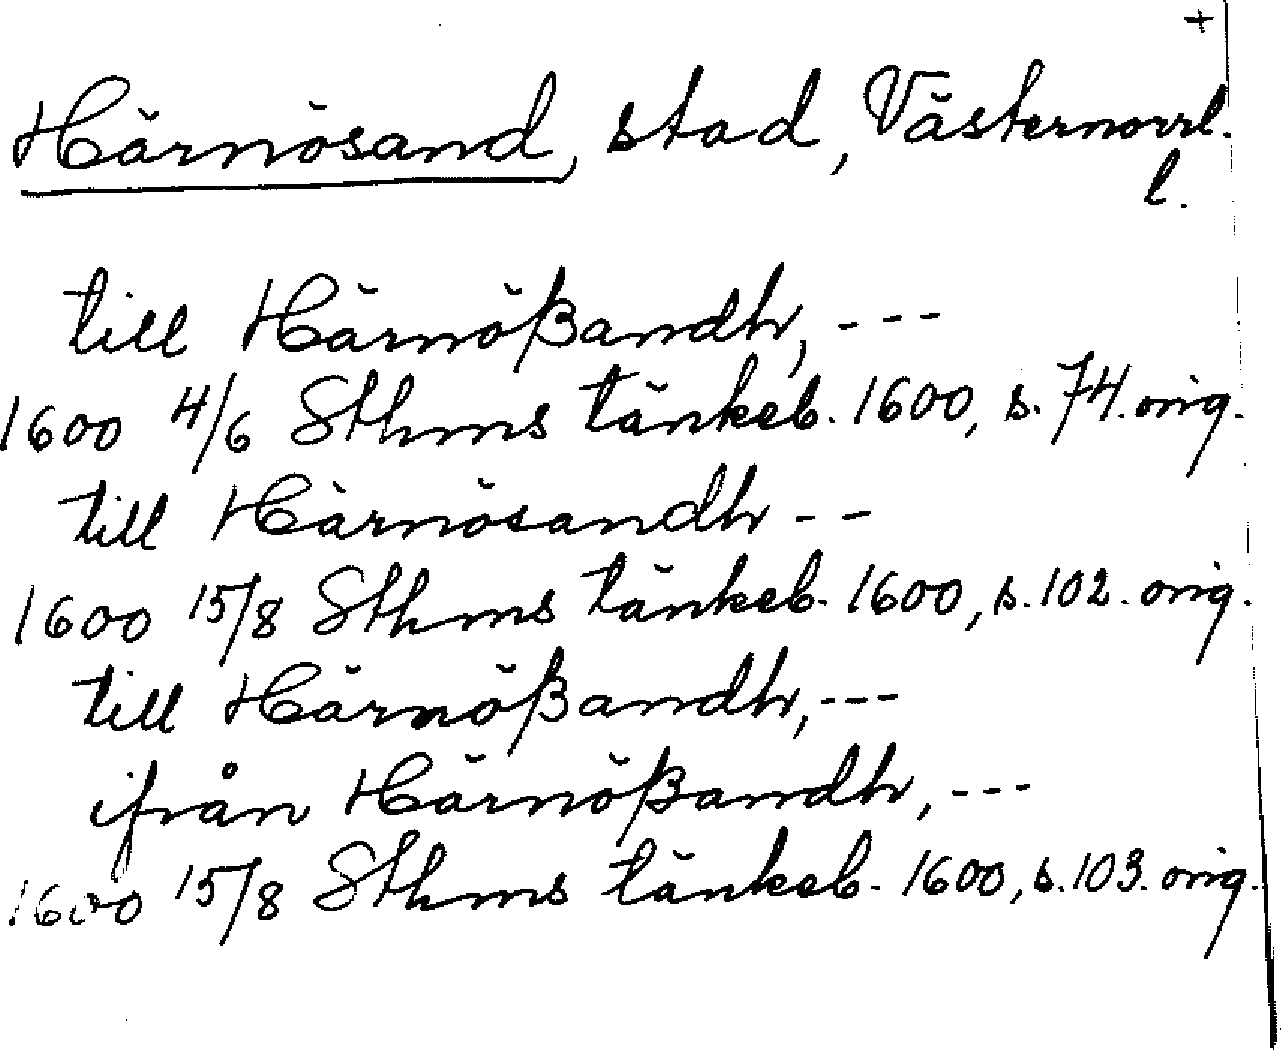 +
Härnösand, stad, Västernorrl.
l.
till Härnößandh, ---
1600 4/6 Sthms tänkeb. 1600, s. 74. orig.
till Härnösandh --
1600 15/8 Sthms tänkeb. 1600, s. 102. orig.
till Härnößandh, ---
ifrån Härnößandh, ---
1600 15/8 Sthms tänkeb. 1600, s. 103. orig.